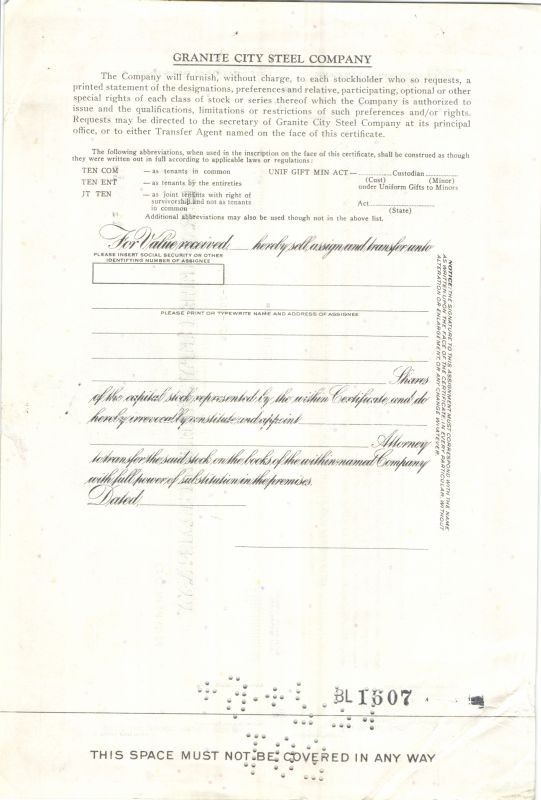 GRANITE CITY STEEL COMPANY
The Company will furnish, without charge, to each stockholder who so requests, a
printed statement of the designations, preferences and relative, participating, optional or other
special rights of each class of stock or series thereof which the Company is authorized to
issue and the qualifications, limitations or restrictions of such preferences and/or rights.
Requests may be directed to the secretary of Granite City Steel Company at its principal
office, or to either Transfer Agent named on the face of this certificate.
The following abbreviations, when used in the inscription on the face of this certificate, shall be construed as though
they were written out in full according to applicable laws or regulations:
TEN COM — as tenants in common
TEN ENT — as tenants by the entireties
JT TEN — as joint tenants with right of
survivorship and not as tenants
in common
UNIF GIFT MIN ACT — Custodian
(Cust) (Minor)
under Uniform Gifts to Minors
Act
(State)
Additional abbreviations may also be used though not in the above list.
For Value received, hereby sell, assign and transfer unto
PLEASE INSERT SOCIAL SECURITY OR OTHER
IDENTIFYING NUMBER OF ASSIGNEE
PLEASE PRINT OR TYPEWRITE NAME AND ADDRESS OF ASSIGNEE
Shares
of the capital stock represented by the within Certificate, and do
hereby irrevocably constitute and appoint
Attorney
to transfer the said stock on the books of the within-named Company
with full power of substitution in the premises.
Dated,
NOTICE: THE SIGNATURE TO THIS ASSIGNMENT MUST CORRESPOND WITH THE NAME
AS WRITTEN UPON THE FACE OF THE CERTIFICATE, IN EVERY PARTICULAR, WITHOUT
ALTERATION OR ENLARGEMENT, OR ANY CHANGE WHATEVER.
BL 1507
THIS SPACE MUST NOT BE COVERED IN ANY WAY